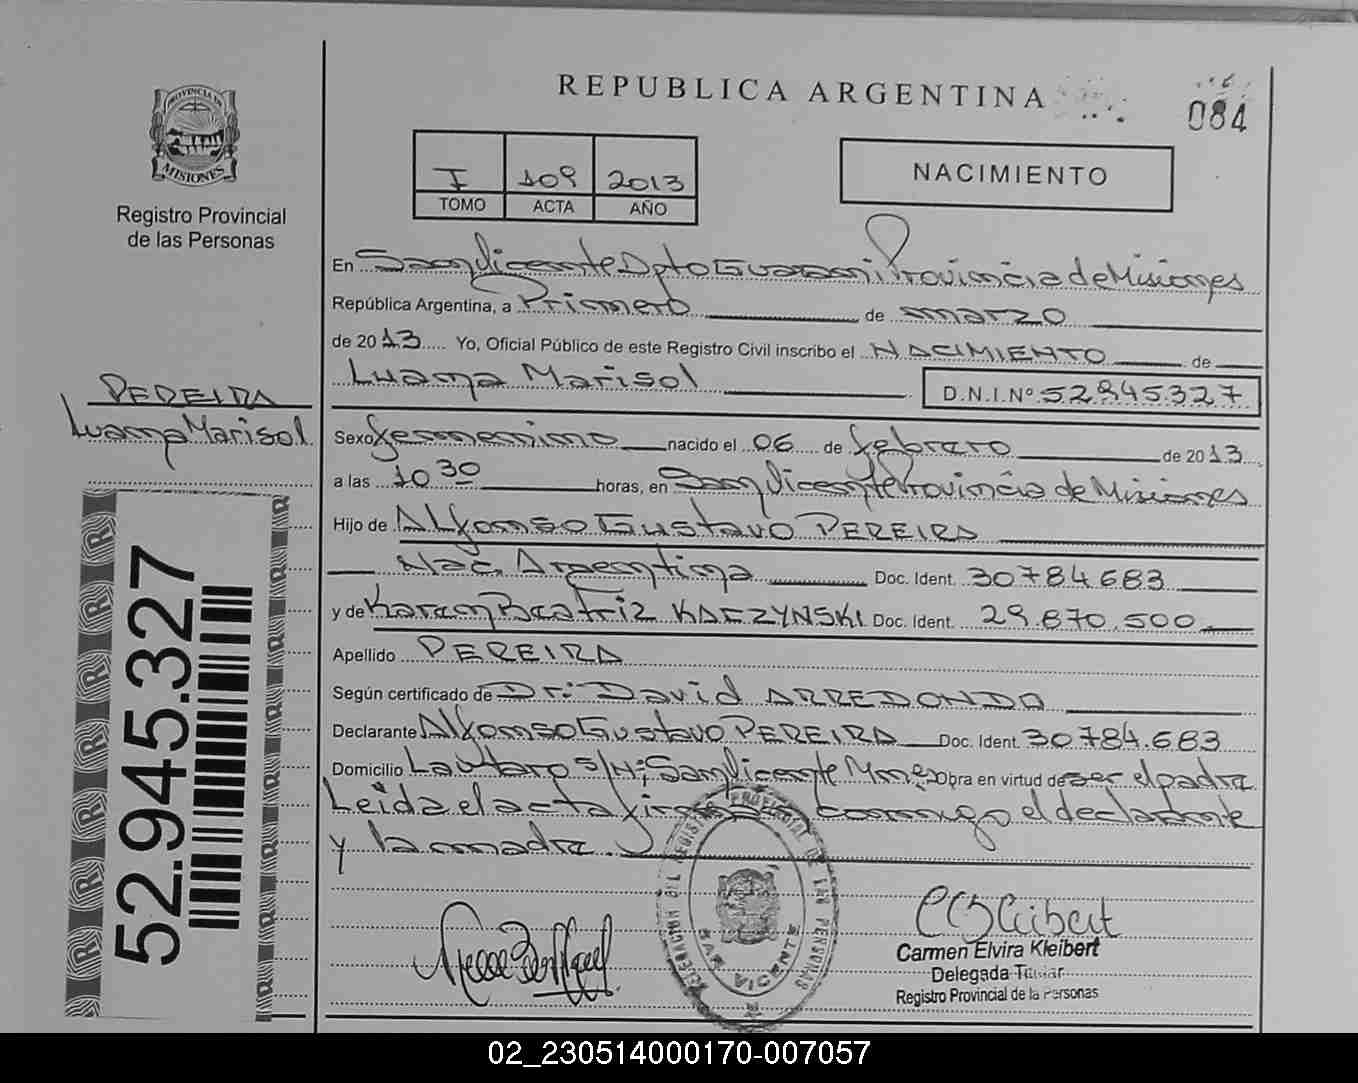 REPUBLICA ARGENTINA
084
PROVINCIA DE
MISIONES
Registro Provincial
de las Personas
I 109 2013
TOMO ACTA AÑO
NACIMIENTO
En San Vicente Dpto Guarani Provincia de Misiones
República Argentina, a Primero de marzo
de 2013 Yo, Oficial Público de este Registro Civil inscribo el NACIMIENTO de
Luana Marisol D.N.I.Nº 52945327
PEREIRA
Luana Marisol
Sexo femenino nacido el 06 de febrero de 2013
a las 10 30 horas, en San Vicente Provincia de Misiones
Hijo de Alfonso Gustavo PEREIRA
Nac. Argentina Doc. Ident. 30784.683
y de Karen Beatriz KACZYNSKI Doc. Ident. 29.870.500
Apellido PEREIRA
Según certificado de Dr: David ARREDONDO
Declarante Alfonso Gustavo PEREIRA Doc. Ident. 30.784.683
Domicilio Lautaro S/N; San Vicente Mnes Obra en virtud de ser el padre
Leida el acta conmigo el declarante
y la madre
52.945.327
SAN VICENTE
Carmen Elvira Kleibert
Delegada Titular
Registro Provincial de la Personas
02_230514000170-007057